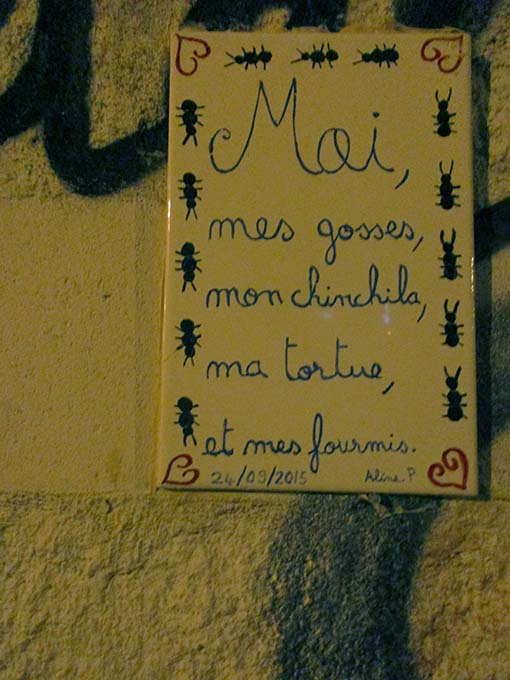 Moi,
mes gosses,
mon chinchila,
ma tortue,
et mes fourmis.
24/09/2015 Aline.P